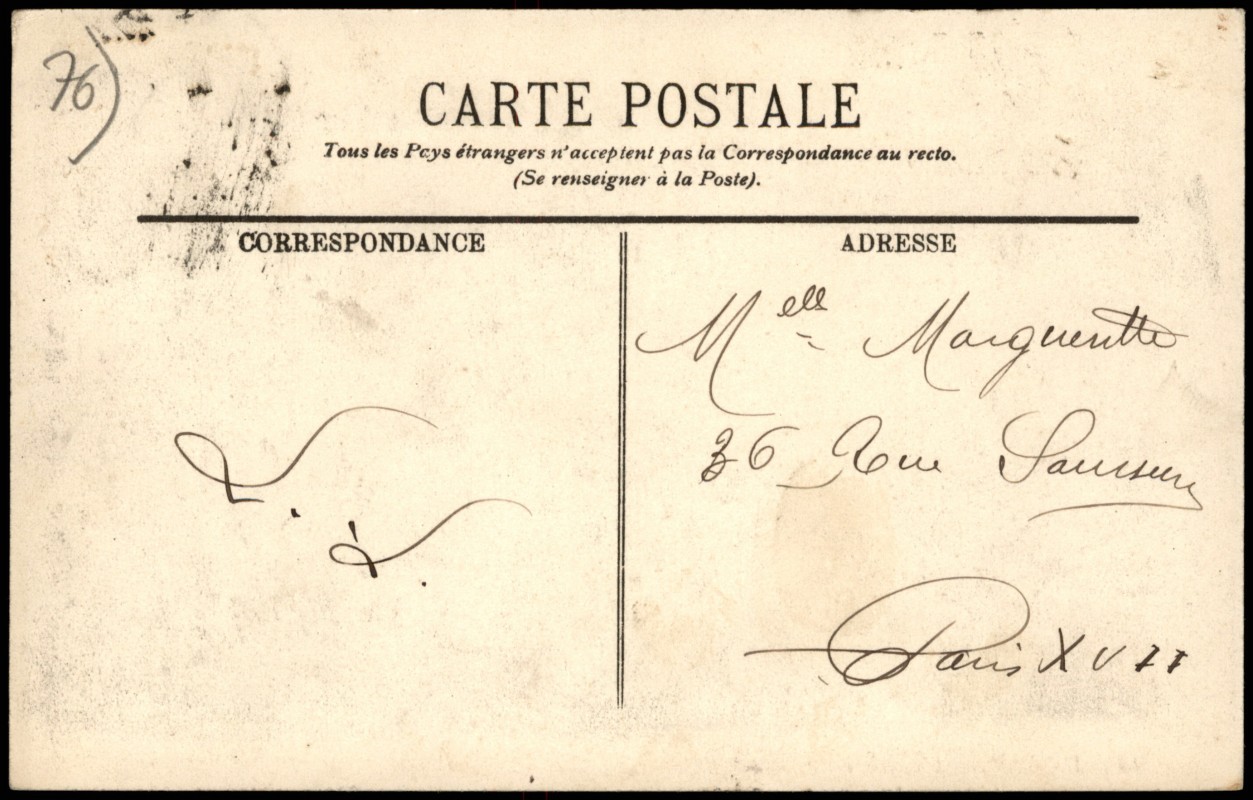 76)
CARTE POSTALE
Tous les Pays étrangers n'acceptent pas la Correspondance au recto.
(Se renseigner à la Poste).
CORRESPONDANCE
ADRESSE
Melle Margueritte
36 Rue Saussure
Paris XVII